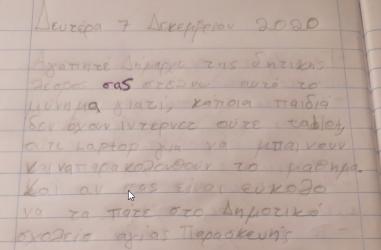 Δευτέρα 7 Δεκεμβρίου 2020
Αγαπητέ Δήμαρχε της δητικής
σας στέλνω αυτό το
μύνημα γιατί, κάποια παιδιά
δεν έχουν ίντερνετ ούτε tablet,
ούτε λαρτορ για να μπαίνουν
και να παρακολουθούν το μάθημα.
Και αν σας είναι εύκολο
να τα πάτε στο Δημοτικό
σχολείο αγίας Παρασκευής